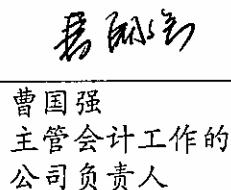 曹国强
主管会计工作的
公司负责人